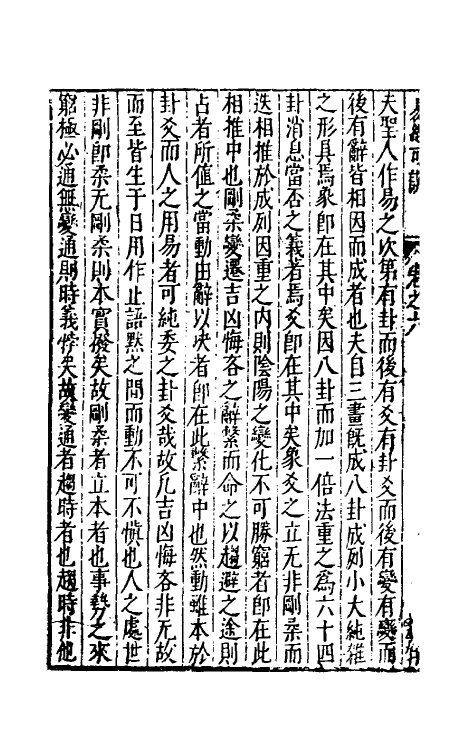 夫聖人作易之次第有卦而後有爻有卦爻而後有變有變而
後有辭皆相因而成者也夫自三畫旣成八卦成列小大純雜
之形具焉象卽在其中矣因八卦而加一倍法重之爲六十四
卦消息當否之義著焉爻卽在其中矣象爻之立无非剛柔而
迭相推於成列因重之内則陰陽之變化不可勝窮者卽在此
相推中也剛柔變遷吉凶悔吝之辭繫而命之以趨避之途則
占者所值之當動由辭以決者卽在此繫辭中也然動雖本於
卦爻而人之用易者可純委之卦爻哉故凡吉凶悔吝非无故
而至皆生于日用作止語默之間而動不可不愼也人之處世
非剛卽柔无剛柔則本實撥矣故剛柔者立本者也事勢之來
窮極必通無變通則時義悖矣故變通者趨時者也趨時非他